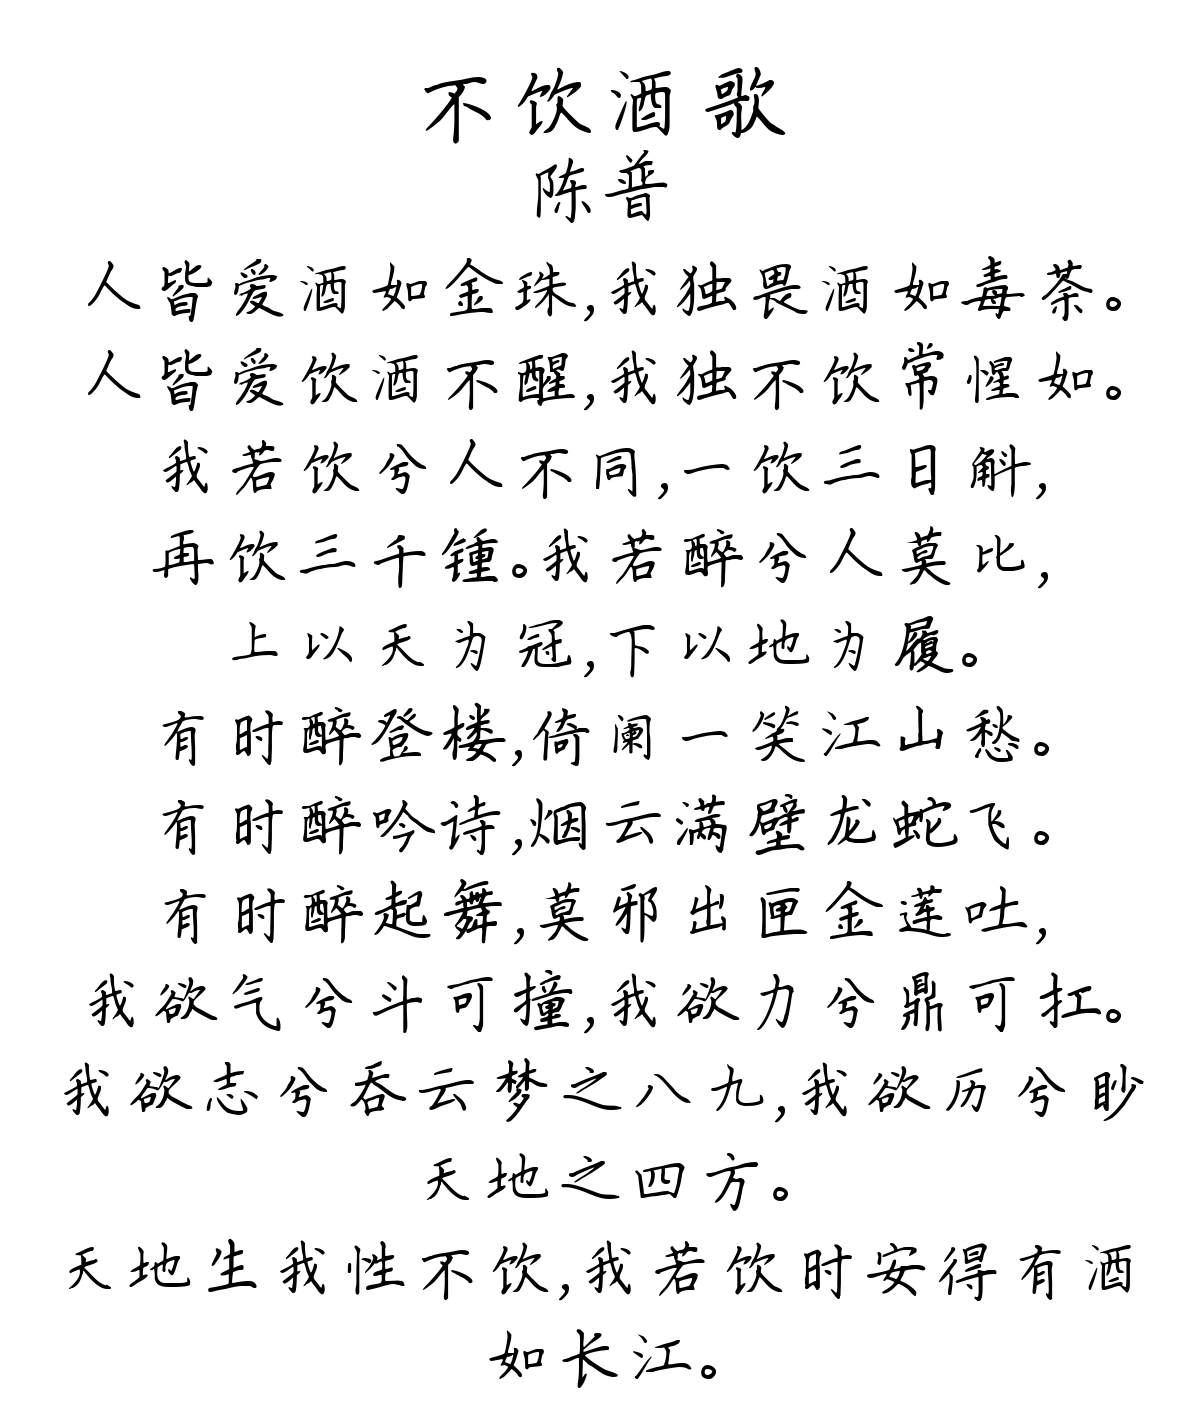 不饮酒歌
陈普
人皆爱酒如金珠,我独畏酒如毒荼。
人皆爱饮酒不醒,我独不饮常惺如。
我若饮兮人不同,一饮三日斛,
再饮三千锺。我若醉兮人莫比,
上以天为冠,下以地为履。
有时醉登楼,倚阑一笑江山愁。
有时醉吟诗,烟云满壁龙蛇飞。
有时醉起舞,莫邪出匣金莲吐,
我欲气兮斗可撞,我欲力兮鼎可扛。
我欲志兮吞云梦之八九,我欲历兮眇
天地之四方。
天地生我性不饮,我若饮时安得有酒
如长江。